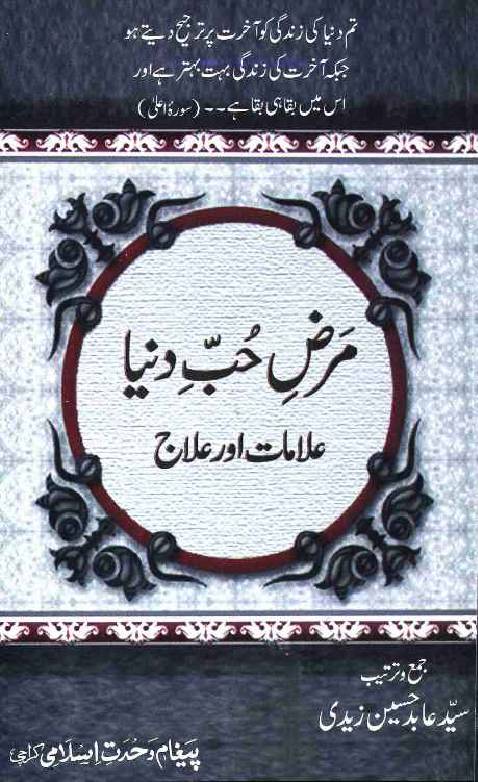 تم دنیا کی زندگی کو آخرت پر ترجیح دیتے ہو
جبکہ آخرت کی زندگی بہت بہتر ہے اور
اس میں بقا ہی بقا ہے۔۔ (سورۂ اعلیٰ)
مَرَضِ حُبِّ دنیا
علامات اور علاج
جمع و ترتیب
سیّد عابد حسین زیدی
پیغام وحدتِ اسلامی کراچی